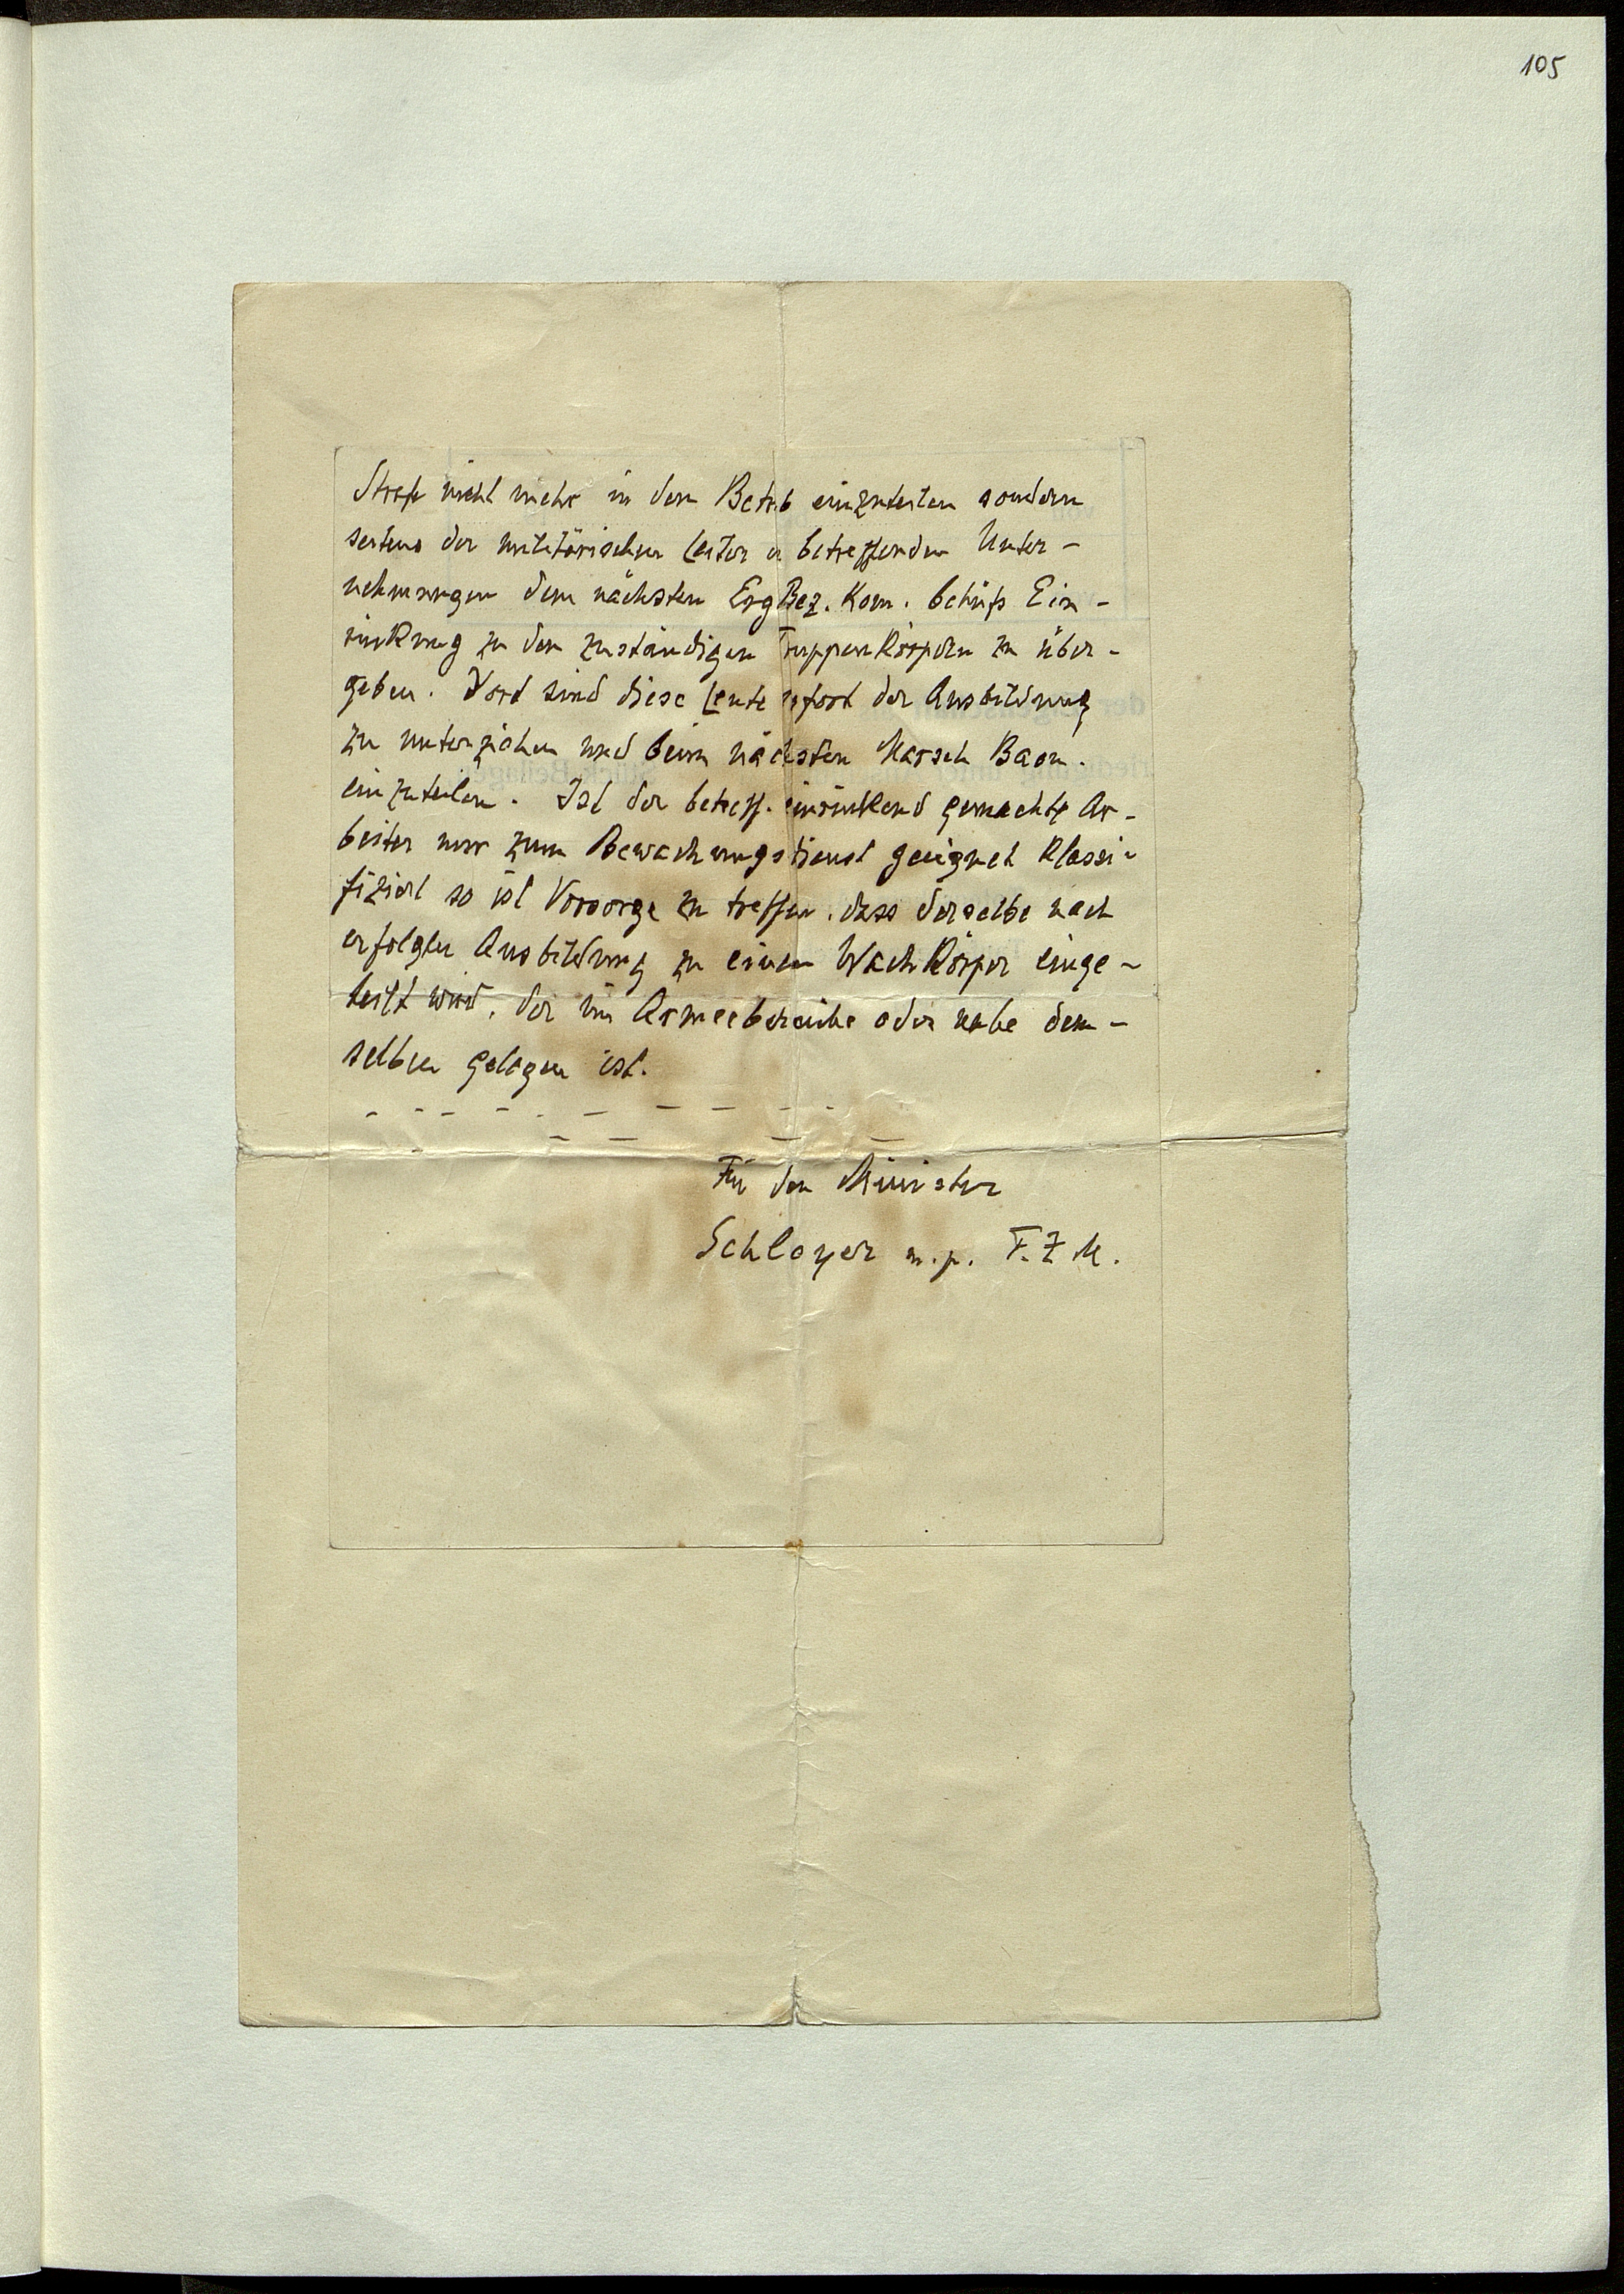 105
Strafe nicht mehr in den Betrieb einzuteilen sondern
seitens der militärischen Leiter d. betreffenden Unter-
nehmungen dem nächsten ErgBez. Kom. behufs Ein-
rückung zu den zuständigen Truppenkörpern zu über-
geben. Dort sind diese Leute sofort der Ausbildung
zu unterziehen und beim nächsten Marsch Baon.
einzuteilen. Ist der betreff. einrückend gemachte Ar-
beiter nur zum Bewachungsdienst geeignet klassi-
fiziert so ist Vorsorge zu treffen, dass derselbe nach
erfolgter Ausbildung zu einem Wachkörper einge-
teilt wird, der im Armeebereiche oder nahe dem-
selben gelegen ist.
Für den Minister
Schleyer m.p. F.Z.M.